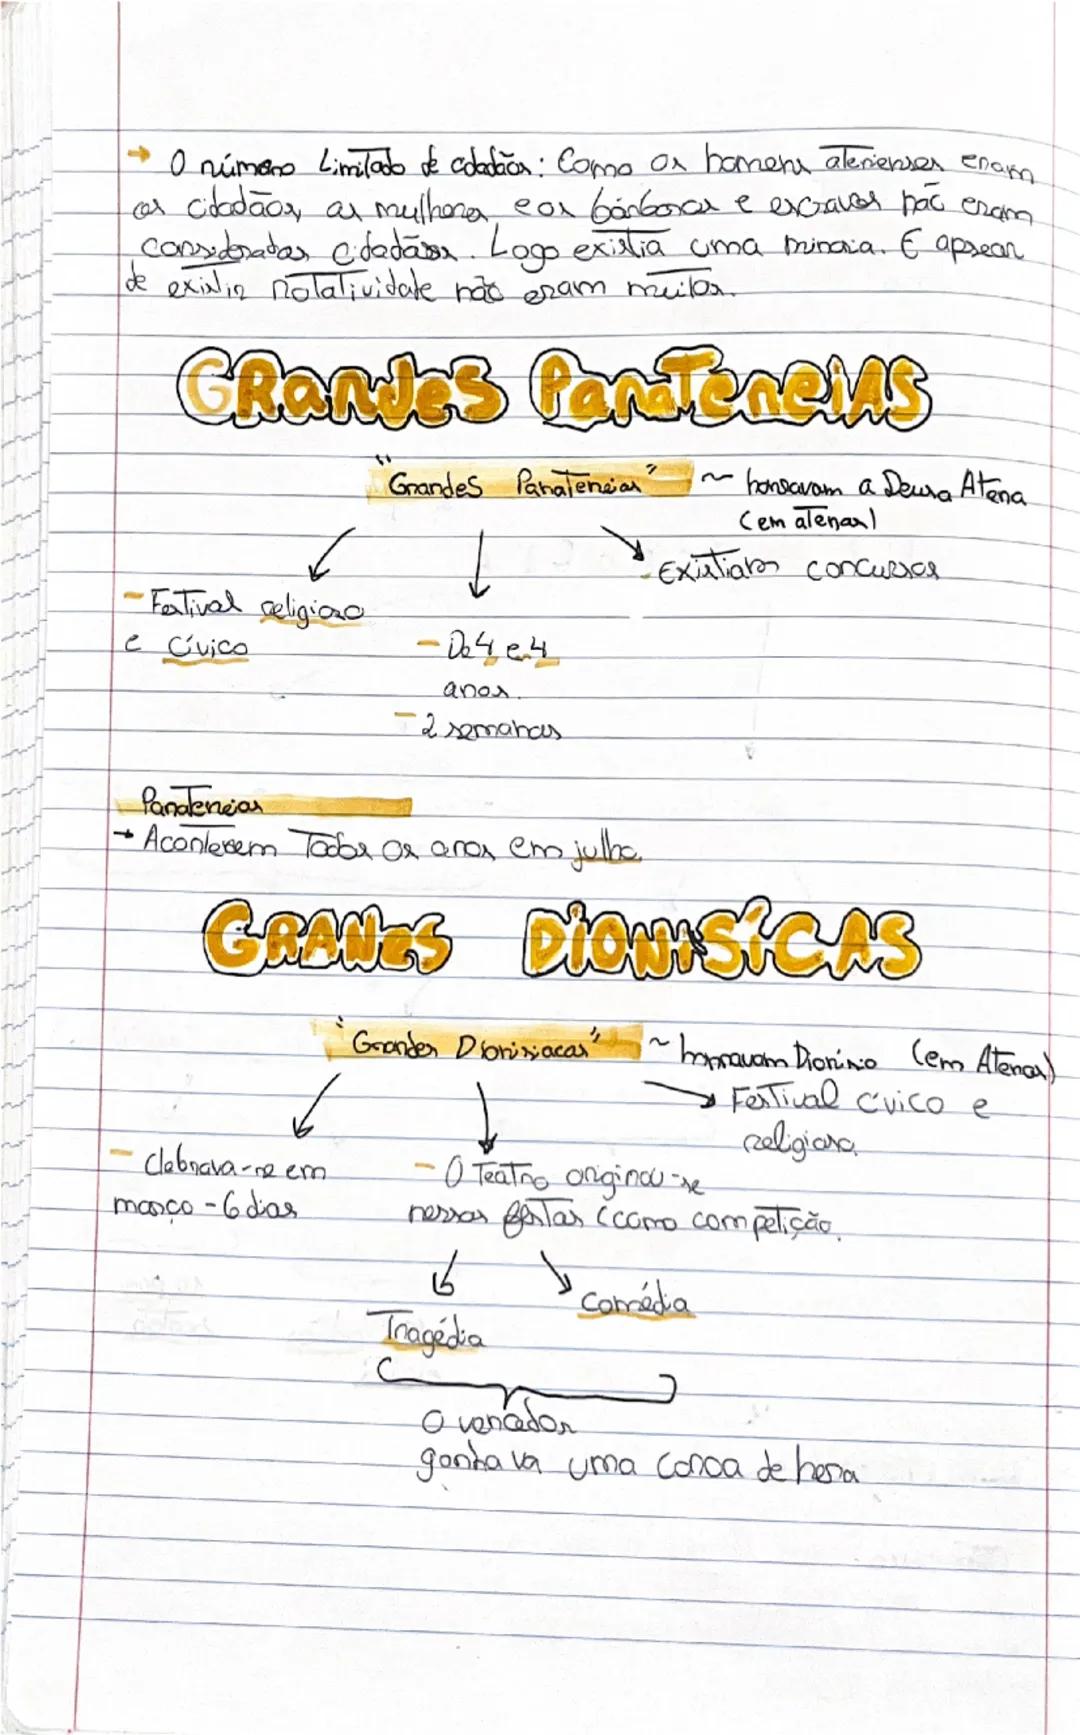 → O número Limitado de cidadãos: Como os homens atenienses eram
os cidadãos, as mulheres, e os bárbaros e escravos não eram
considerados cidadãos. Logo existia uma minoia. E apsear
de existir rotatividate não eram muitos.
GRandes PanaTeneiAS
"Grandes Panateneias" ~ honravam a Deusa Atena
(em atenas)
Existiam concursos
- Festival religioso
e Cívico
- De 4 e 4
anos.
- 2 semanas
Panateneias
→ Acontecem Todos os anos em julho.
GRANdES DiONiSíCAS
"Grandes Dionisiacas" ~ honravam Dionísio (em Atenas)
Festival cívico e
religioso.
- Clebrava-se em
março - 6 dias
- O Teatro originou-se
nessas festas (como competição.
Comédia
Tragédia
O vencedor
ganhava uma coroa de hera